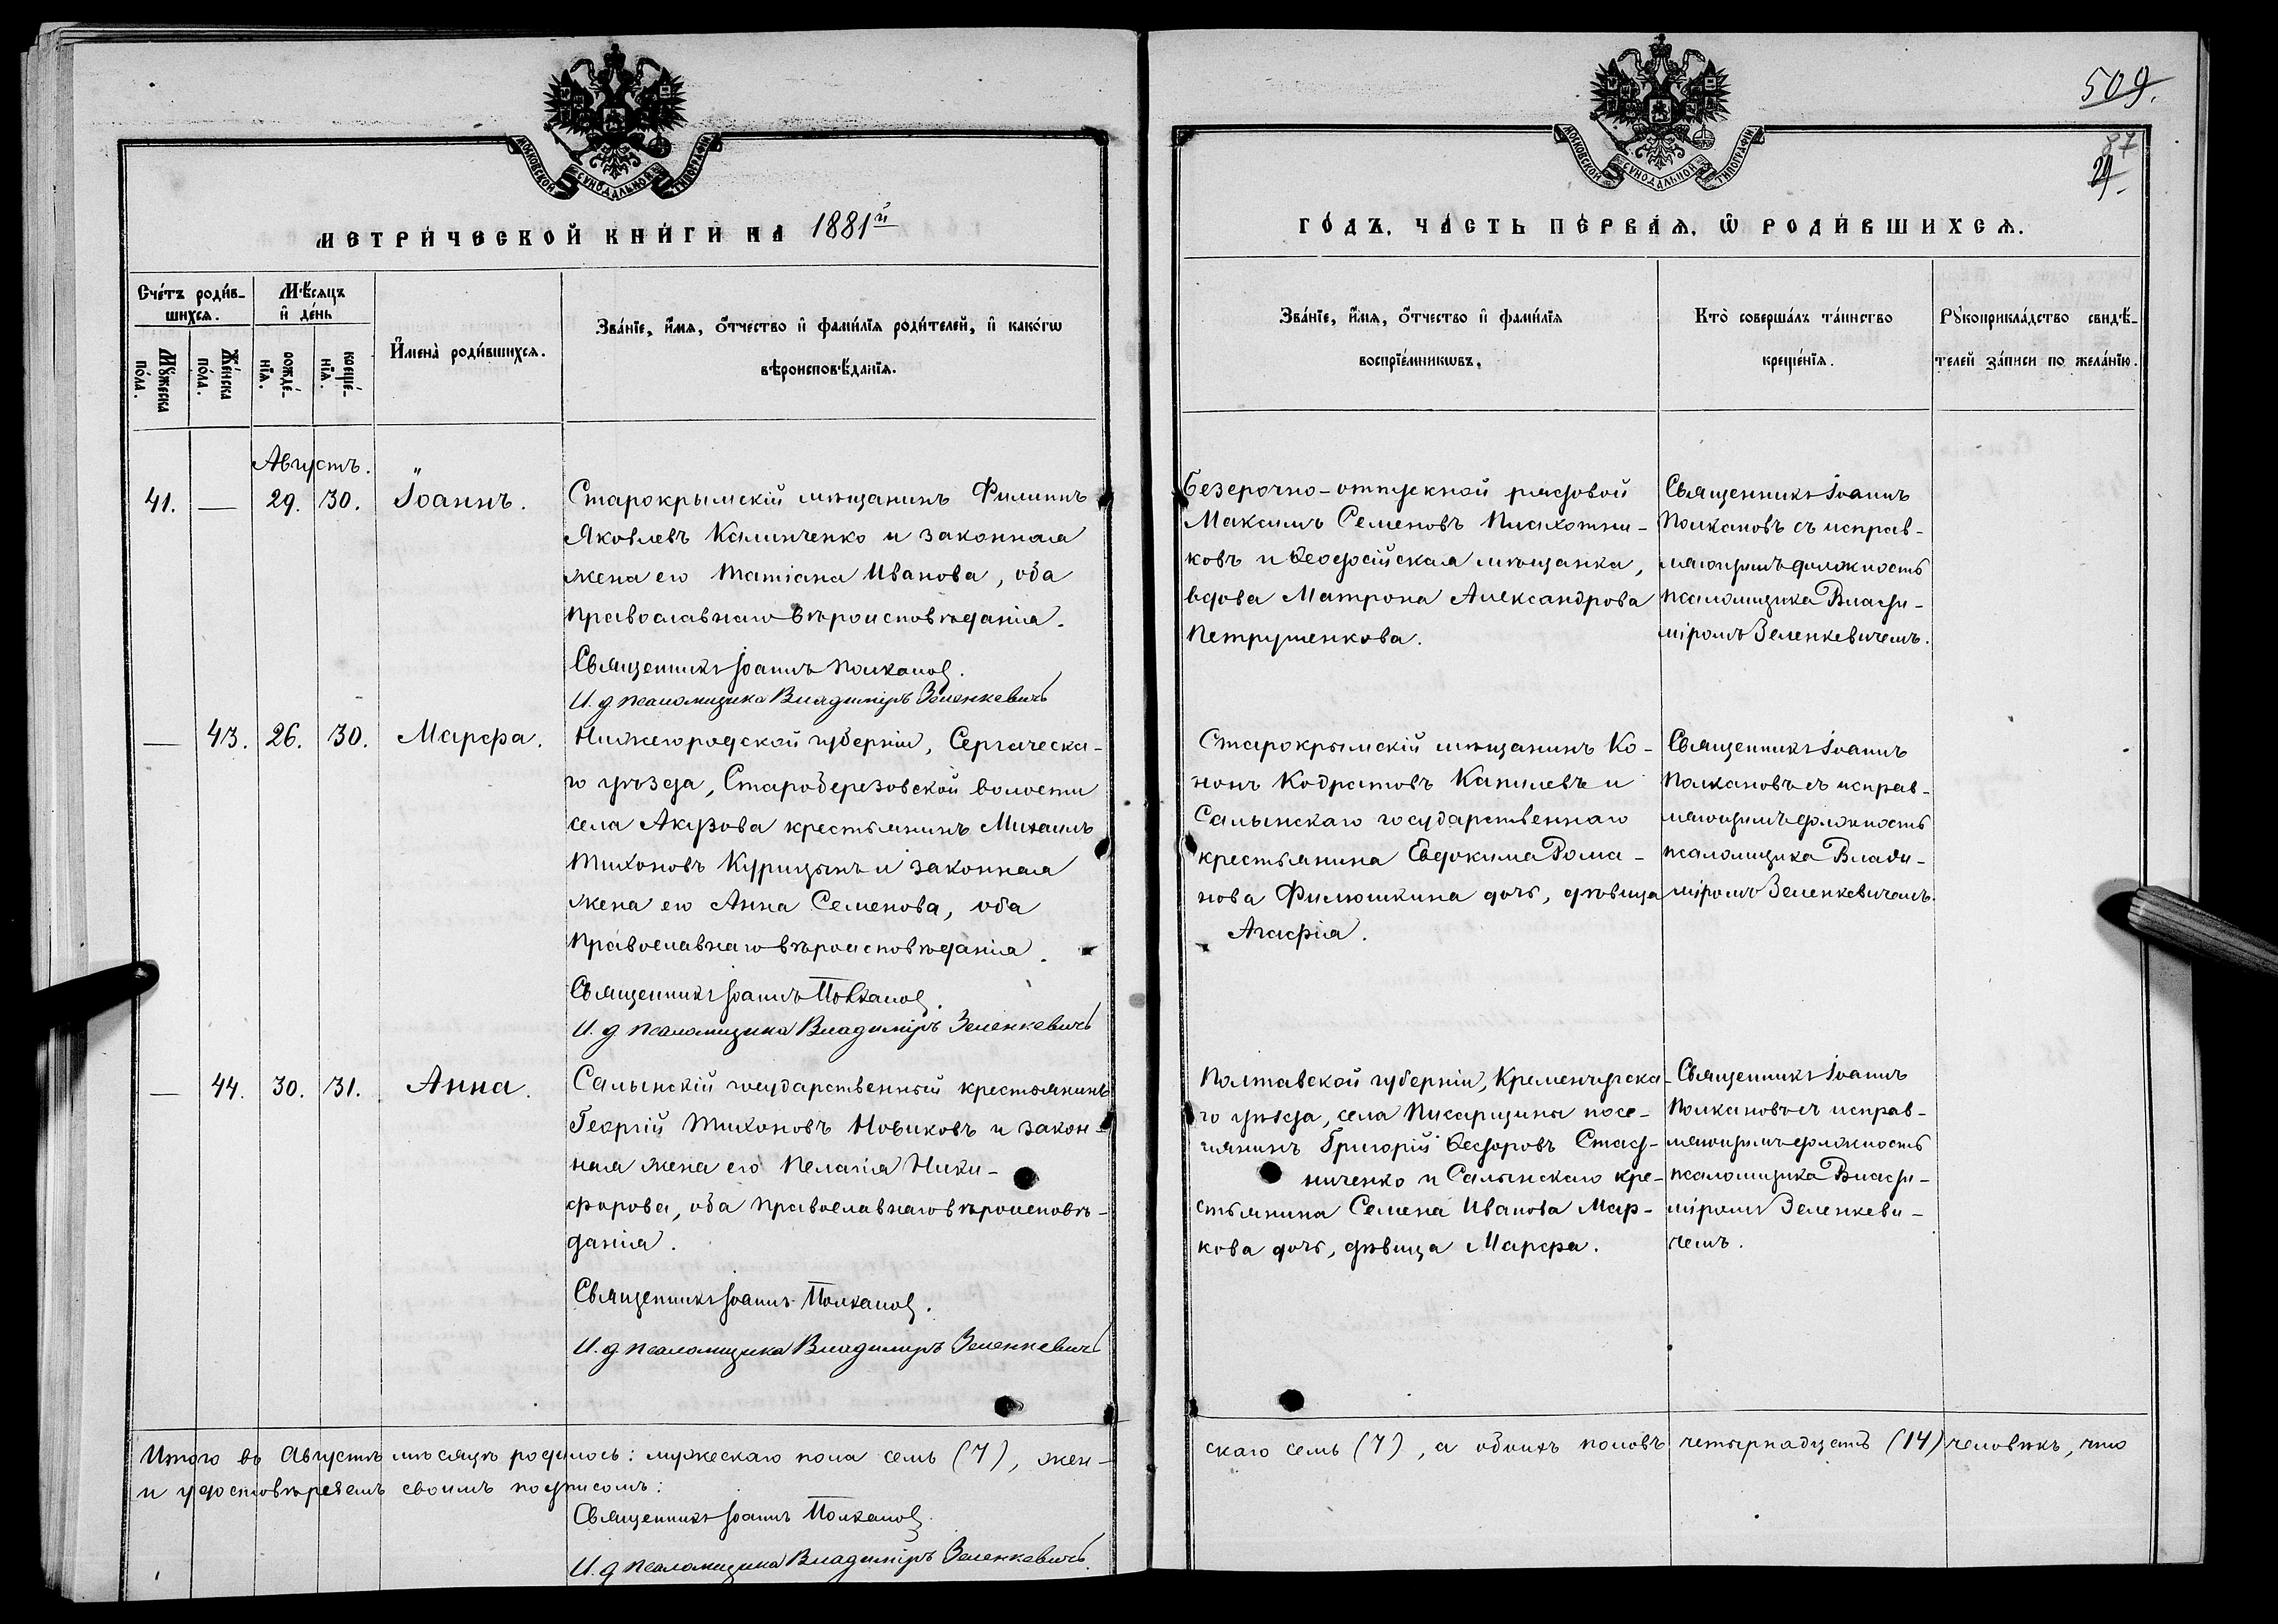 509.
87
29.
МОСКОВСКОЙ СѴНОДАЛЬНОЙ ТИПОГРАФІИ
МОСКОВСКОЙ СѴНОДАЛЬНОЙ ТИПОГРАФІИ
МЕТРИ́ЧЕСКОЙ КНИ́ГИ НА 1881й
ГО́ДЪ, ЧА́СТЬ ПЕ́РВАѦ, Ѡ РОДИ́ВШИХСѦ.
Сче́тъ роди́в-
шихсѧ.
Мꙋжеска по́ла.
Же́нска по́ла.
Мѣ́сяцъ
и҆ де́нь
рожде́-
нїѧ.
креще́-
нїѧ.
И҆мена̀ роди́вшихсѧ.
Зва́нїе, и҆́мѧ, ѻ҆́тчество и҆ фами́лїѧ роди́телей, и҆ како́гѡ
вѣроисповѣ́данїѧ.
Зва́нїе, и҆́мѧ, ѻ҆́тчество и҆ фами́лїѧ
воспрїе́мникѡвъ.
Кто̀ соверша́лъ та́инство
креще́нїѧ.
Рꙋкоприкла́дство свидѣ́-
телей за́писи по жела́нїю.
Августъ.
41. — 29. 30. Іоаннъ.
Старокрымскій мѣщанинъ Филиппъ
Яковлевъ Калинченко и законная
жена его Татіана Иванова, оба
православнаго вѣроисповѣданія.
Священникъ Іоаннъ Полкановъ.
И. д. псаломщика Владиміръ Зеленкевичъ
Безсрочно-отпускной рядовой
Максимъ Семеновъ Писхотни-
ковъ и Ѳеодосійская мѣщанка,
вдова Матрона Александрова
Петрушенкова.
Священникъ Іоаннъ
Полкановъ съ исправ-
ляющимъ должность
псаломщика Влади-
міромъ Зеленкевичемъ.
— 43. 26. 30. Марфа.
Нижегородской губерніи, Сергаческа-
го уѣзда, Староберезовской волости
села Акузова крестьянинъ Михаилъ
Тихоновъ Курицынъ и законная
жена его Анна Семенова, оба
православнаго вѣроисповѣданія.
Священникъ Іоаннъ Полкановъ.
И. д. псаломщика Владиміръ Зеленкевичъ
Старокрымскій мѣщанинъ Ко-
нонъ Кодратовъ Капылевъ и
Салынскаго государственнаго
крестьянина Евдокима Рома-
нова Филюшкина дочь, дѣвица
Агафія.
Священникъ Іоаннъ
Полкановъ съ исправ-
ляющимъ должность
псаломщика Влади-
міромъ Зеленкевичемъ.
— 44. 30. 31. Анна.
Салынскій государственный крестьянинъ
Георгій Тихоновъ Новиковъ и закон-
ная жена его Пелагія Ники-
форова, оба православнаго вѣроисповѣ-
данія.
Священникъ Іоаннъ Полкановъ.
И. д. псаломщика Владиміръ Зеленкевичъ
Полтавской губерніи, Кременчугска-
го уѣзда, села Писарщины посе-
лянинъ Григорій Ѳедоровъ Стад-
ниченко и Салынскаго кре-
стьянина Семена Иванова Мар-
кова дочь, дѣвица Марфа.
Священникъ Іоаннъ
Полкановъ съ исправ-
ляющимъ должность
псаломщика Влади-
міромъ Зеленкеви-
чемъ.
Итого въ Августѣ мѣсяцѣ родилось: мужескаго пола семь (7), жен-
скаго семь (7), а обоихъ половъ четырнадцать (14) человѣкъ, что
и удостовѣряемъ своимъ подписомъ:
Священникъ Іоаннъ Полкановъ.
И. д. псаломщика Владиміръ Зеленкевичъ.